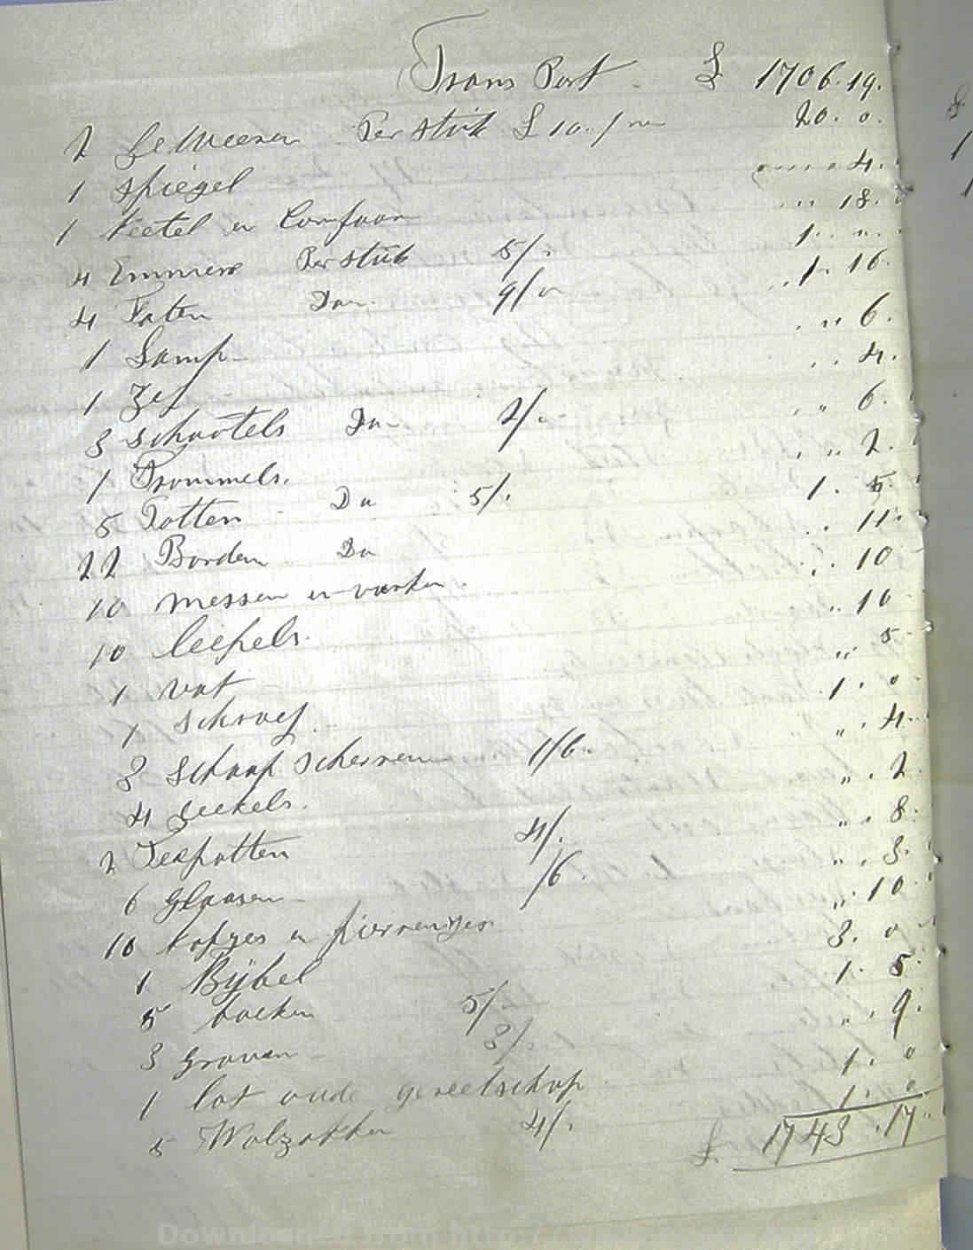 Trans Port. £ 1706.19.
2 geweeren Per stuk £ 10./ 20. 0.
1 spiegel 4.
1 Keetel en Comfoor 18.
4 Emmers Per stuk 5/. 1. ".
4 Vaten Do 9/ 1. 16.
1 Lamp 6.
1 Zef 4.
3 schootels Do 2/. 6.
1 Trommels. 2.
5 Potten Do 5/. 1. 5.
22 Borden Do 11.
10 messen en vorken 10
10 leepels. 10
1 vat 5
1 schroef. 1. 0
3 Schaap scheeren 1/6 4.
4 seekels. 2.
2 Teepotten 4/. 8.
6 Glaasen /6 3.
10 kopjes en pierrengjes 10
1 Bijbel 3. 0
5 boeken 5/ 1. 5
3 Graven 3/. 9.
1 lot oude gereetschap 1. 0
5 Wolzakken 4/. 1. 0
£ 1743.17